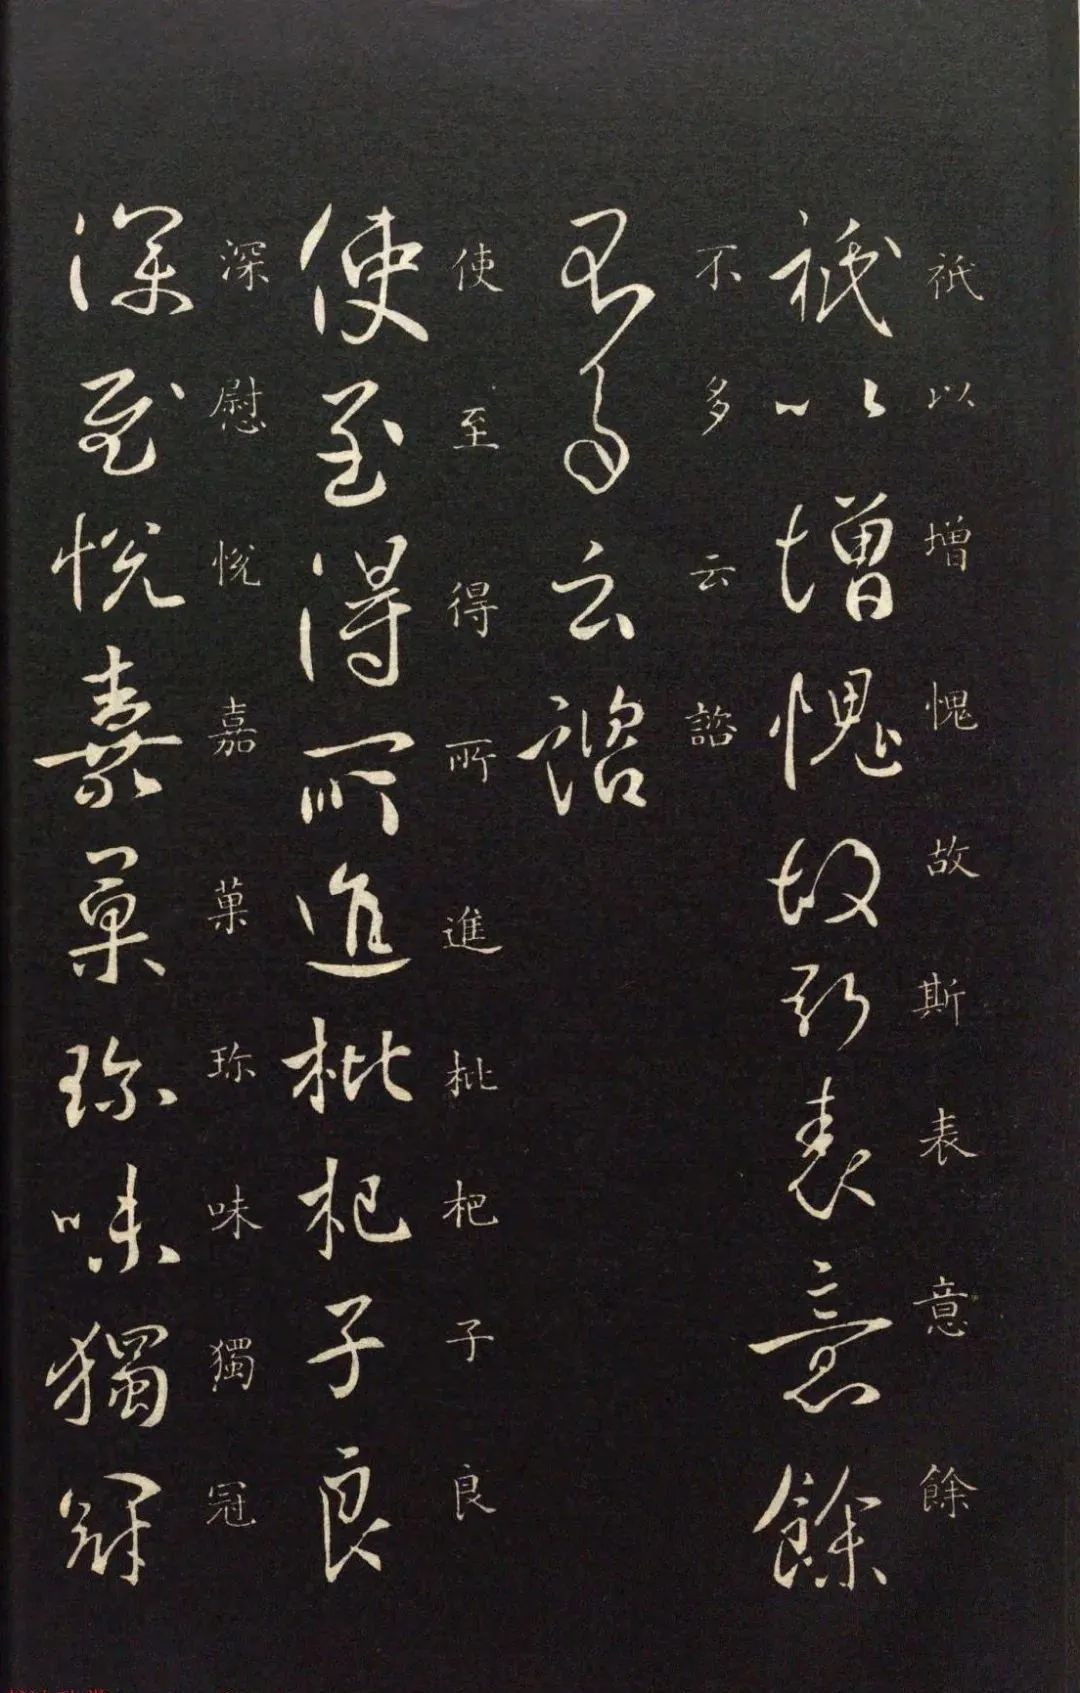 祇以增愧故斯表意餘
祇以增愧故斯表意餘
不多云諮
不多云諮
使至得所進枇杷子良
使至得所進枇杷子良
深慰悅嘉菓珍味獨冠
深慰悅嘉菓珍味獨冠